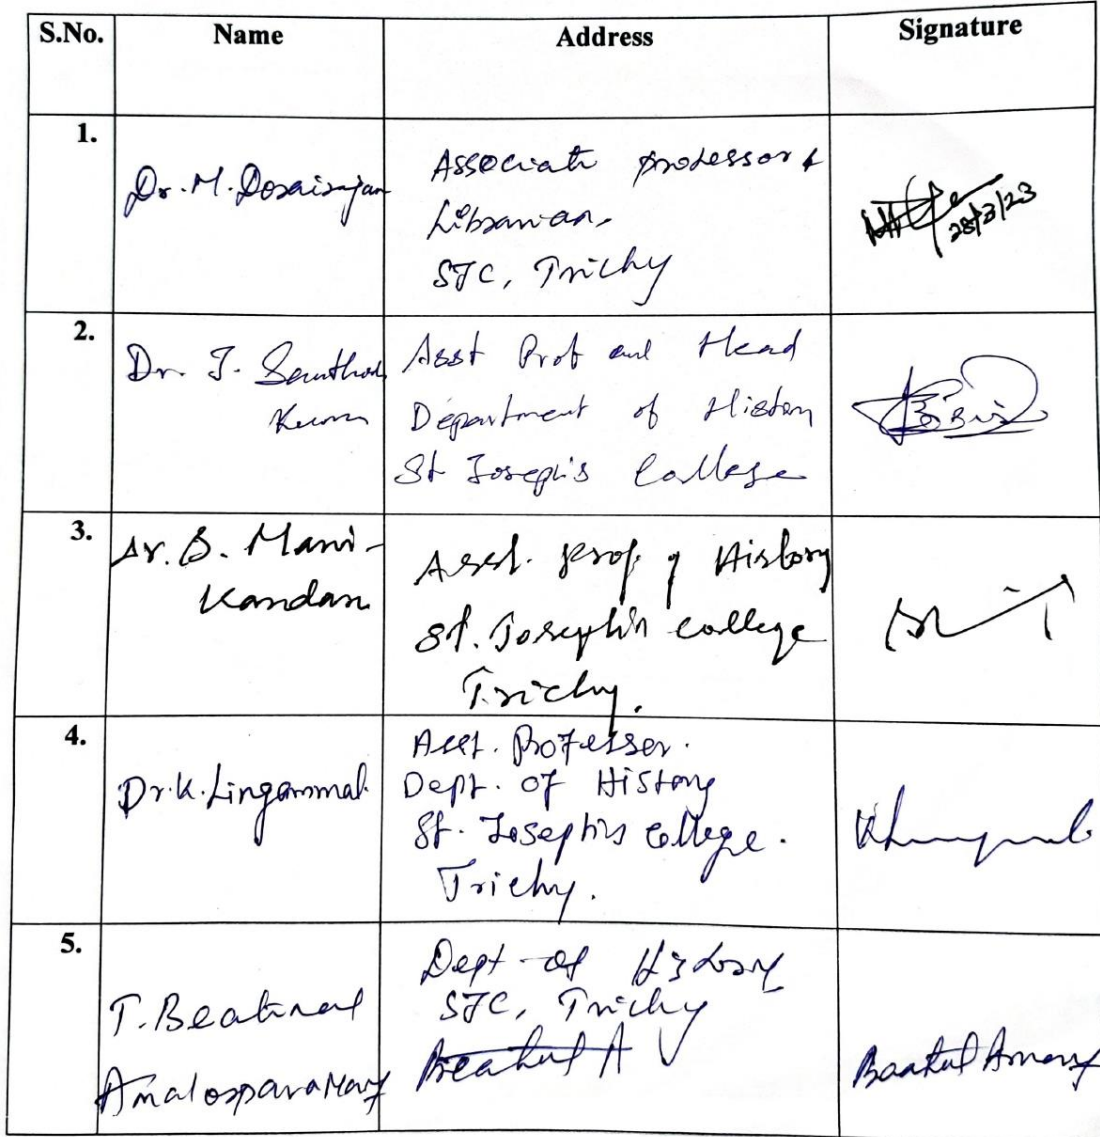 S.No. Name Address Signature
1.
Dr. M. Dorairajan
Associate professor &
Librarian,
STC, Trichy
28/3/23
2.
Dr. J. Santhosh
Kumar
Asst Prof and Head
Department of History
St Joseph's College
3.
Dr. B. Mani-
Kandan
Asst. Prof. of History
St. Joseph's college
Trichy.
4.
Dr. K. Lingammal
Asst. Professor.
Dept. of History
St. Joseph's college.
Trichy.
5.
T. Beatrical
Amalorpavamary
Dept of History
SJC, Trichy